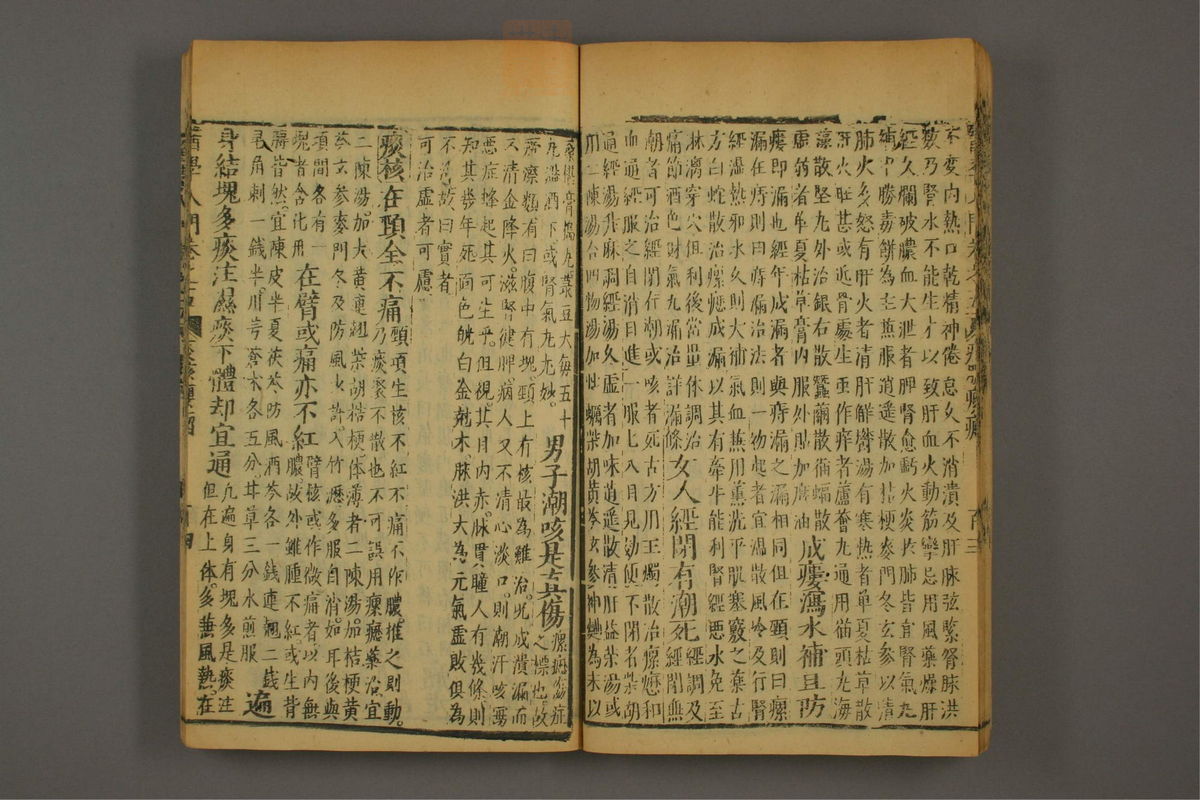 不變內熱口乾精神倦怠久不消潰及肝脉弦緊腎脉洪
數乃腎水不能生才以致肝血火動筋攣忌用風藥燥肝
經久爛破膿血大泄者脾腎愈虧火炎於肺皆宜腎氣丸
肺火久怒有肝火者清肝解欝湯有寒熱者單夏枯草散
肝火旺甚或近骨處生虫作痒者蘆薈丸通用猫頭丸海
藻散堅丸外治銀右散蠶繭散蝙蝠散
虛弱者單夏枯草膏內服外貼加麻油 成瘻瀉水補且防
瘻即漏也經年成漏者與痔漏之漏相同但在頸則曰瘰
漏在痔則曰痔漏治法則一物起者宜溫散風冷及行腎
經濕熱邪水久則大補氣血兼用薰洗平肌塞竅之藥古
方白蛇散治瘰癧成漏以其有牽牛能利腎經惡水免至
淋漓穿穴但利後當量体調治
痛節酒色財氣丸漏治詳漏條 女人經閉有潮死 經調及經閉無
潮者可治經閉行潮或咳者死古方用玉燭散治瘰癧和
血通經服之自消日進一服七八日見効便不閉者柴胡
通經湯升麻調經湯久虛者加味逍遥散清肝益榮湯或
用二陳湯合四物湯加牡蠣柴胡黃芩玄參神麯為末以
膏搗丸菉豆大每五十
丸溫酒下或腎氣丸尤妙 男子潮咳是真傷 瘰癧傷症之標也故
瘡瘰類有曰腹中有塊頸上有核最為難治况成潰漏而
又清金降火滋腎健脾病人又不清心淡口則潮汗咳嗽
惡症蜂起其可生乎但視其目內赤脉貫瞳人有幾條則
知其幾年死面色㿠白金尅木脉洪大為元氣虛敗俱為
不治故曰實者
可治虛者可慮
痰核在頸全不痛 頸項生核不紅不痛不作膿推之則動
乃痰聚不散也不可誤用瘰癧藥治宜
二陳湯加大黃連翹柴胡桔梗体薄者二陳湯加桔梗黃
芩玄參麥門冬及防風少許入竹瀝多服自消如耳後與
項間各有一
塊者含化丹 在臂或痛亦不紅 臂核或作微痛者以內無
膿故外雖腫不紅或生背
膊皆然宜陳皮半夏茯苓防風酒芩各一錢連翹二錢
皂角刺一錢半川芎蒼朮各五分甘草三分水煎服 遍
身結塊多痰注濕痰下體却宜通 凡遍身有塊多是痰注
但在上体多兼風熱在